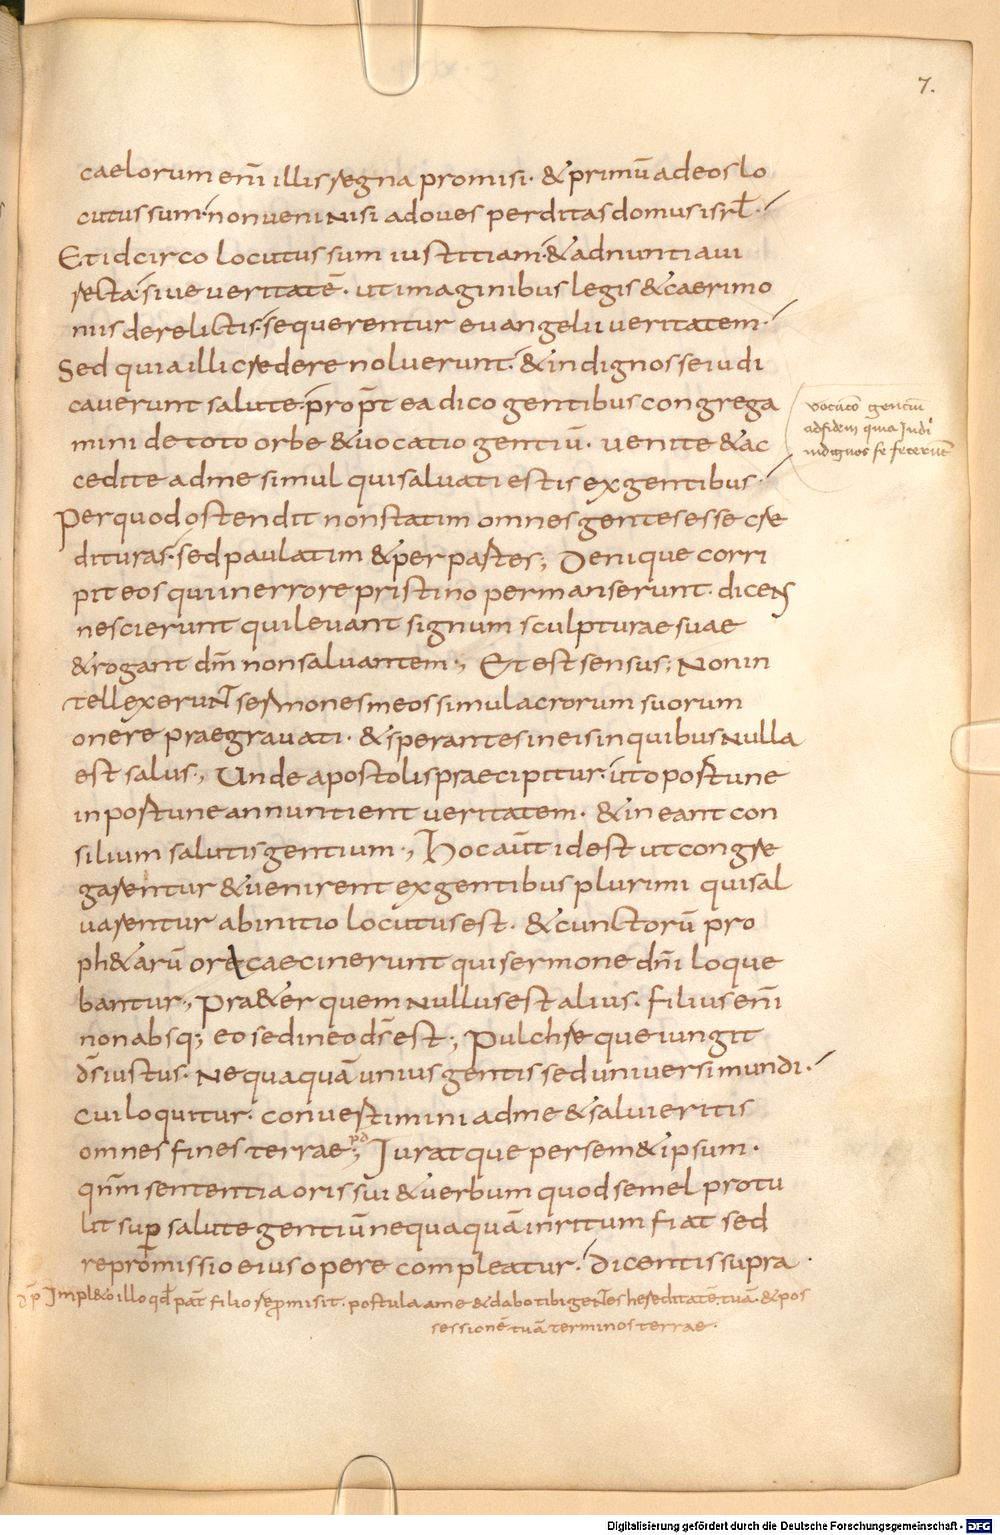 7.
caelorum em̅ illis regna promisi· & primu̅ ad eos lo
cutus sum· non veni nisi ad oues perditas domus isrl̅·
Et idcirco locutus sum iustitiam· & adnuntiaui
recta· siue ueritate̅· ut imaginibus legis & caerimo
niis derelictis· sequerentur euangelii ueritatem·
Sed quia illi credere noluerunt· & indignos se iudi
cauerunt salute· propt̅ ea dico gentibus congrega
mini de toto orbe & uocatio gentiu̅· uenite & ac
cedite ad me simul qui saluati estis ex gentibus·
vocatio̅ gentiu̅
ad fidem quia Iudi
indignos se feceru̅t
Per quod ostendit non statim omnes gentes esse cre
dituras· sed paulatim & per partes; Denique corri
pit eos qui in errore pristino permanserunt· dicens
nescierunt qui leuant signum sculpturae suae
& rogant dm̅ non saluantem·, Et est sensus; Non in
tellexerunt sermones meos simulacrorum suorum
onere praegrauati· & sperantes in eis in quibus nulla
est salus·, Unde apostolis praecipitur· ut oportune
inportune annuntient ueritatem· & ineant con
silium salutis gentium·, Hoc aut̅ id est ut congre
garentur & uenirent ex gentibus plurimi qui sal
uarentur ab initio locutus est· & cunctoru̅ pro
ph&aru̅ ore caecinerunt qui sermone dn̅i loque
bantur·, Pra&er quem nullus est alius· filius em̅
non absq; eo sed in eo ds̅ est·, Pulchre que iungit
ds̅ iustus· Nequaqua̅ unius gentis sed uniuersi mundi·
cui loquitur· conuertimini ad me & salui eritis
omnes fines terrae; Iurat que per sem& ipsum·
qn̅m sententia oris sui & uerbum quod semel protu
lit sup̅ salute gentiu̅ nequaqua̅ inritum fiat sed
repromissio eius opere compleatur· dicentis supra
Impl&o illo qd̅ pat̅ filio rep̅misit· postula a me & dabo tibi gentes hereditate̅ tua̅ & pos
sessione̅ tua̅ terminos terrae·
Digitalisierung gefördert durch die Deutsche Forschungsgemeinschaft - DFG